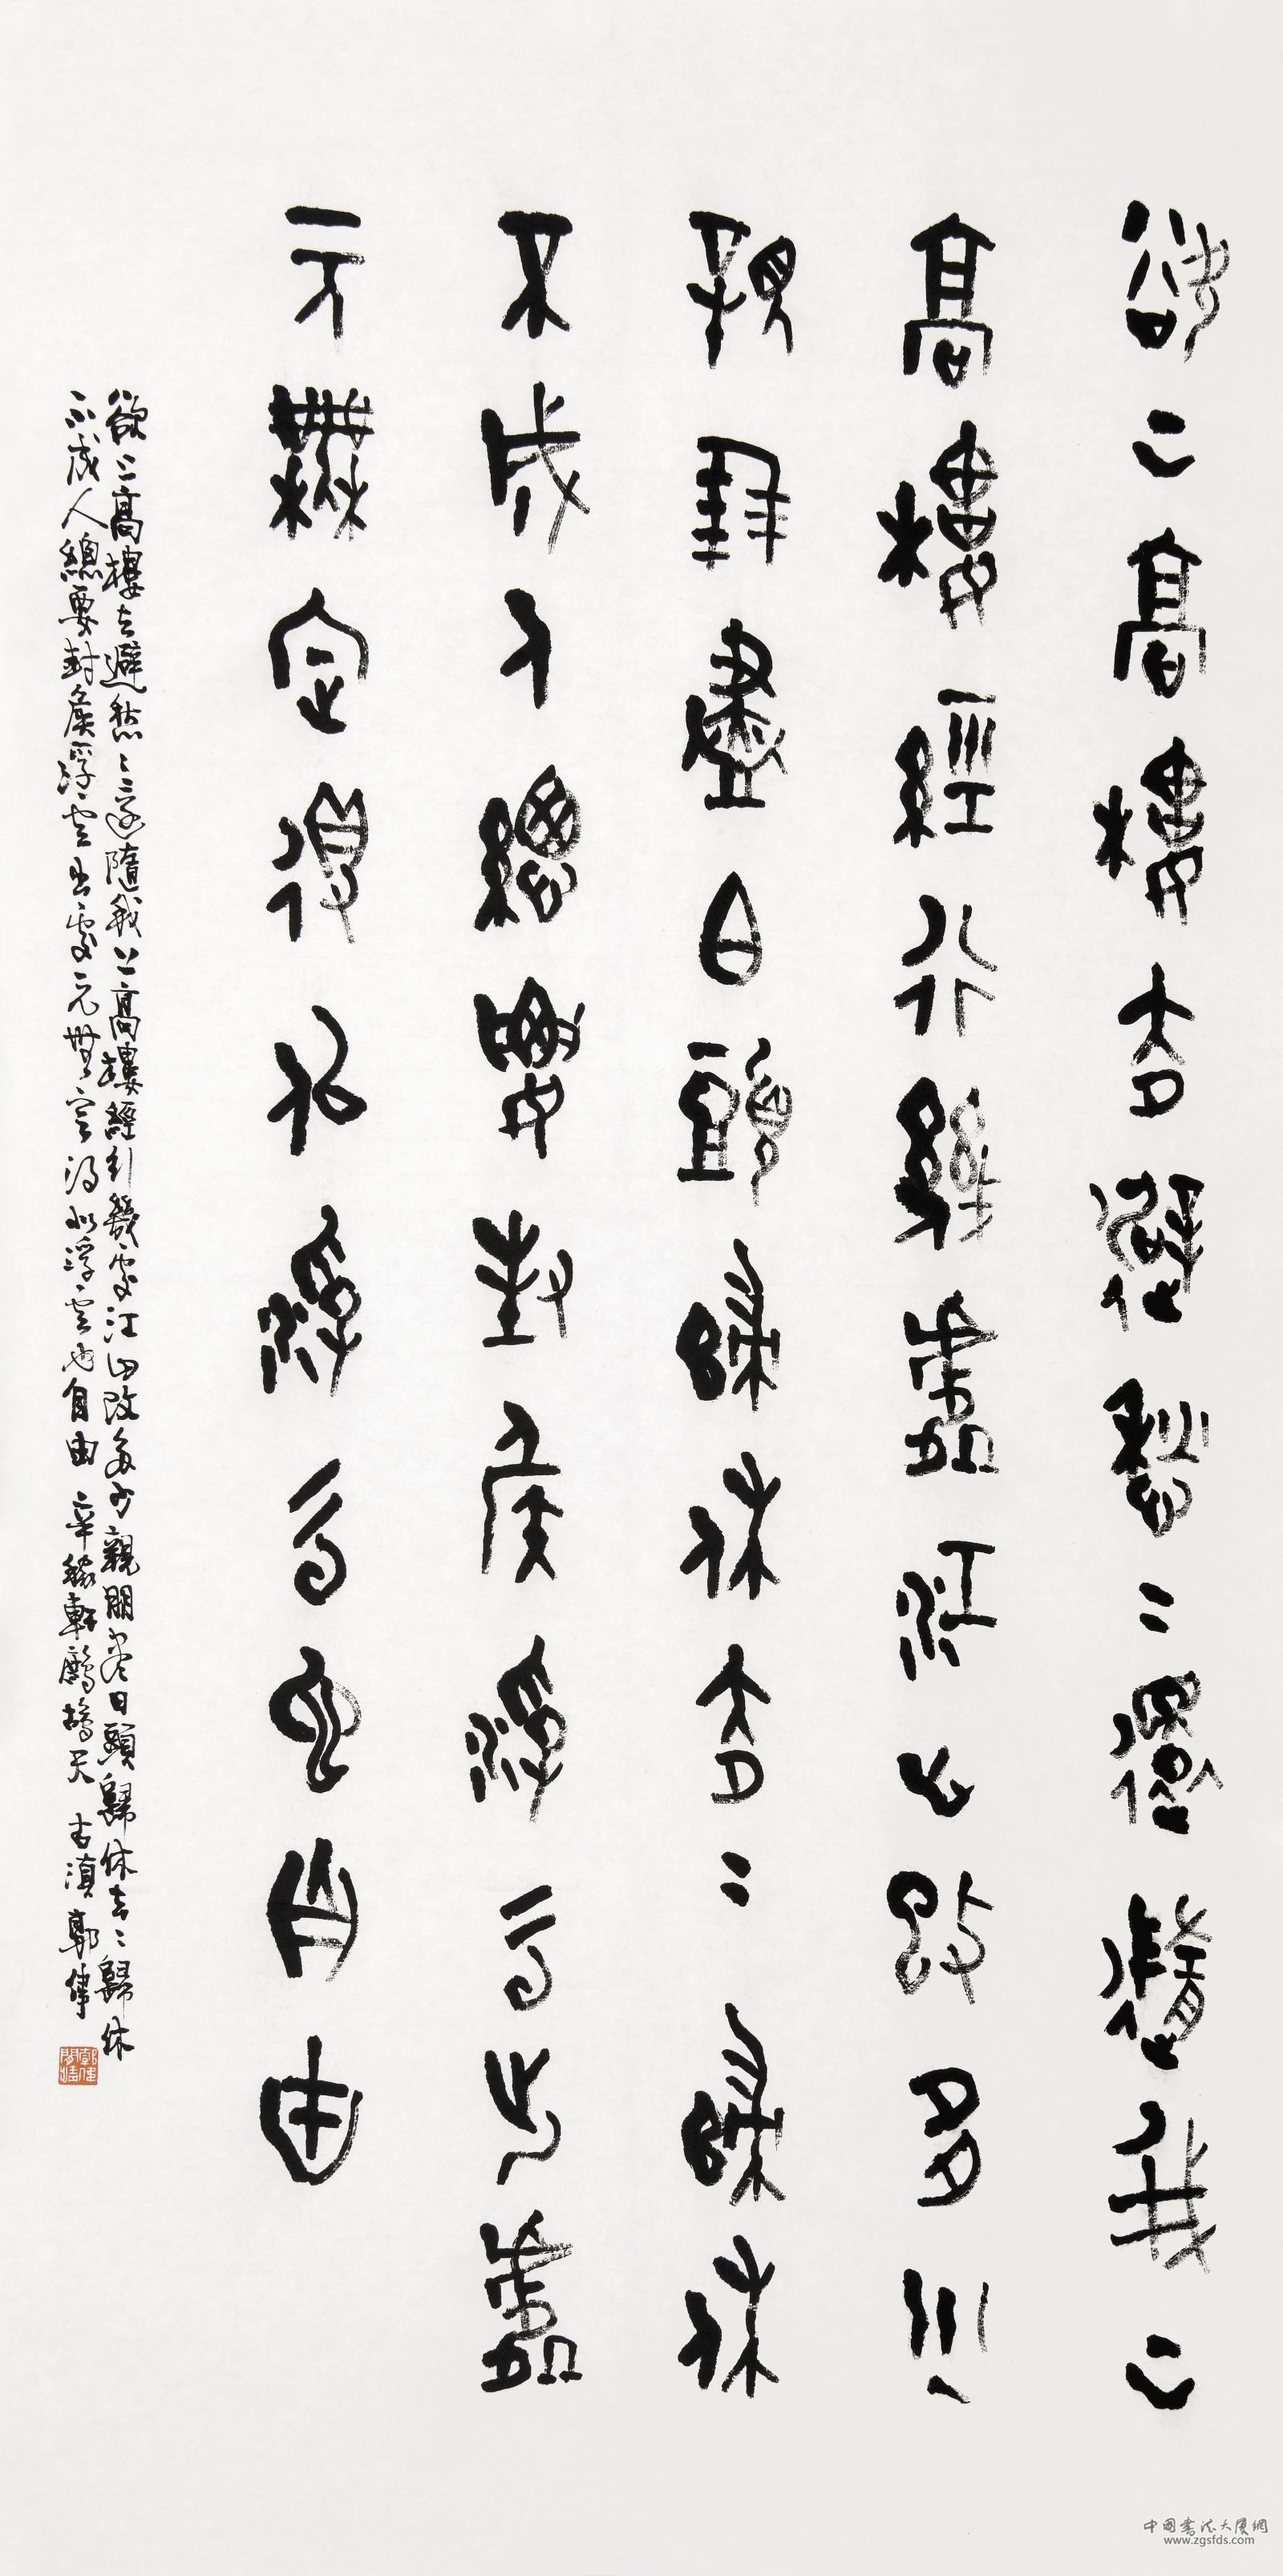 欲上高樓去避愁〻還隨我上
高樓經行幾處江山改多少
親朋盡日頭歸休去〻歸休
不成人總要封侯浮雲出處
元無定得似浮雲也自由
欲上高樓去避愁〻還隨我上高樓經行幾處江山改多少親朋盡日頭歸休去〻歸休
不成人總要封侯浮雲出處元無定得似浮雲也自由 辛稼軒鷓鴣天 古滇郭偉
中國書法大廈網
www.zgsfds.com